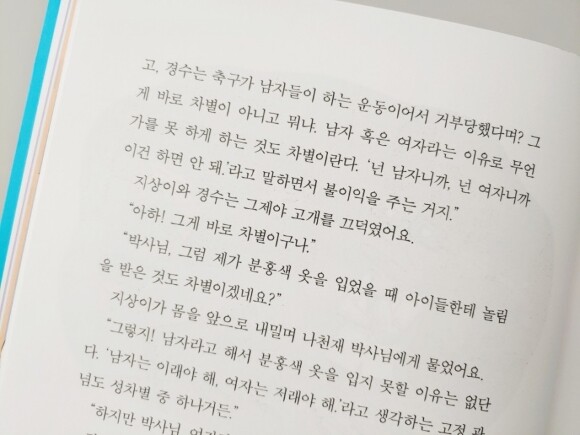 고, 경수는 축구가 남자들이 하는 운동이어서 거부당했다며? 그
게 바로 차별이 아니고 뭐냐. 남자 혹은 여자라는 이유로 무언
가를 못 하게 하는 것도 차별이란다. ‘넌 남자니까, 넌 여자니까
이건 하면 안 돼.’라고 말하면서 불이익을 주는 거지.”
지상이와 경수는 그제야 고개를 끄덕였어요.
“아하! 그게 바로 차별이구나.”
“박사님, 그럼 제가 분홍색 옷을 입었을 때 아이들한테 놀림
을 받은 것도 차별이겠네요?”
지상이가 몸을 앞으로 내밀며 나천재 박사님에게 물었어요.
“그렇지! 남자라고 해서 분홍색 옷을 입지 못할 이유는 없단
다. ‘남자는 이래야 해, 여자는 저래야 해.’라고 생각하는 고정 관
념도 성차별 중 하나거든.”
“하지만 박사님,